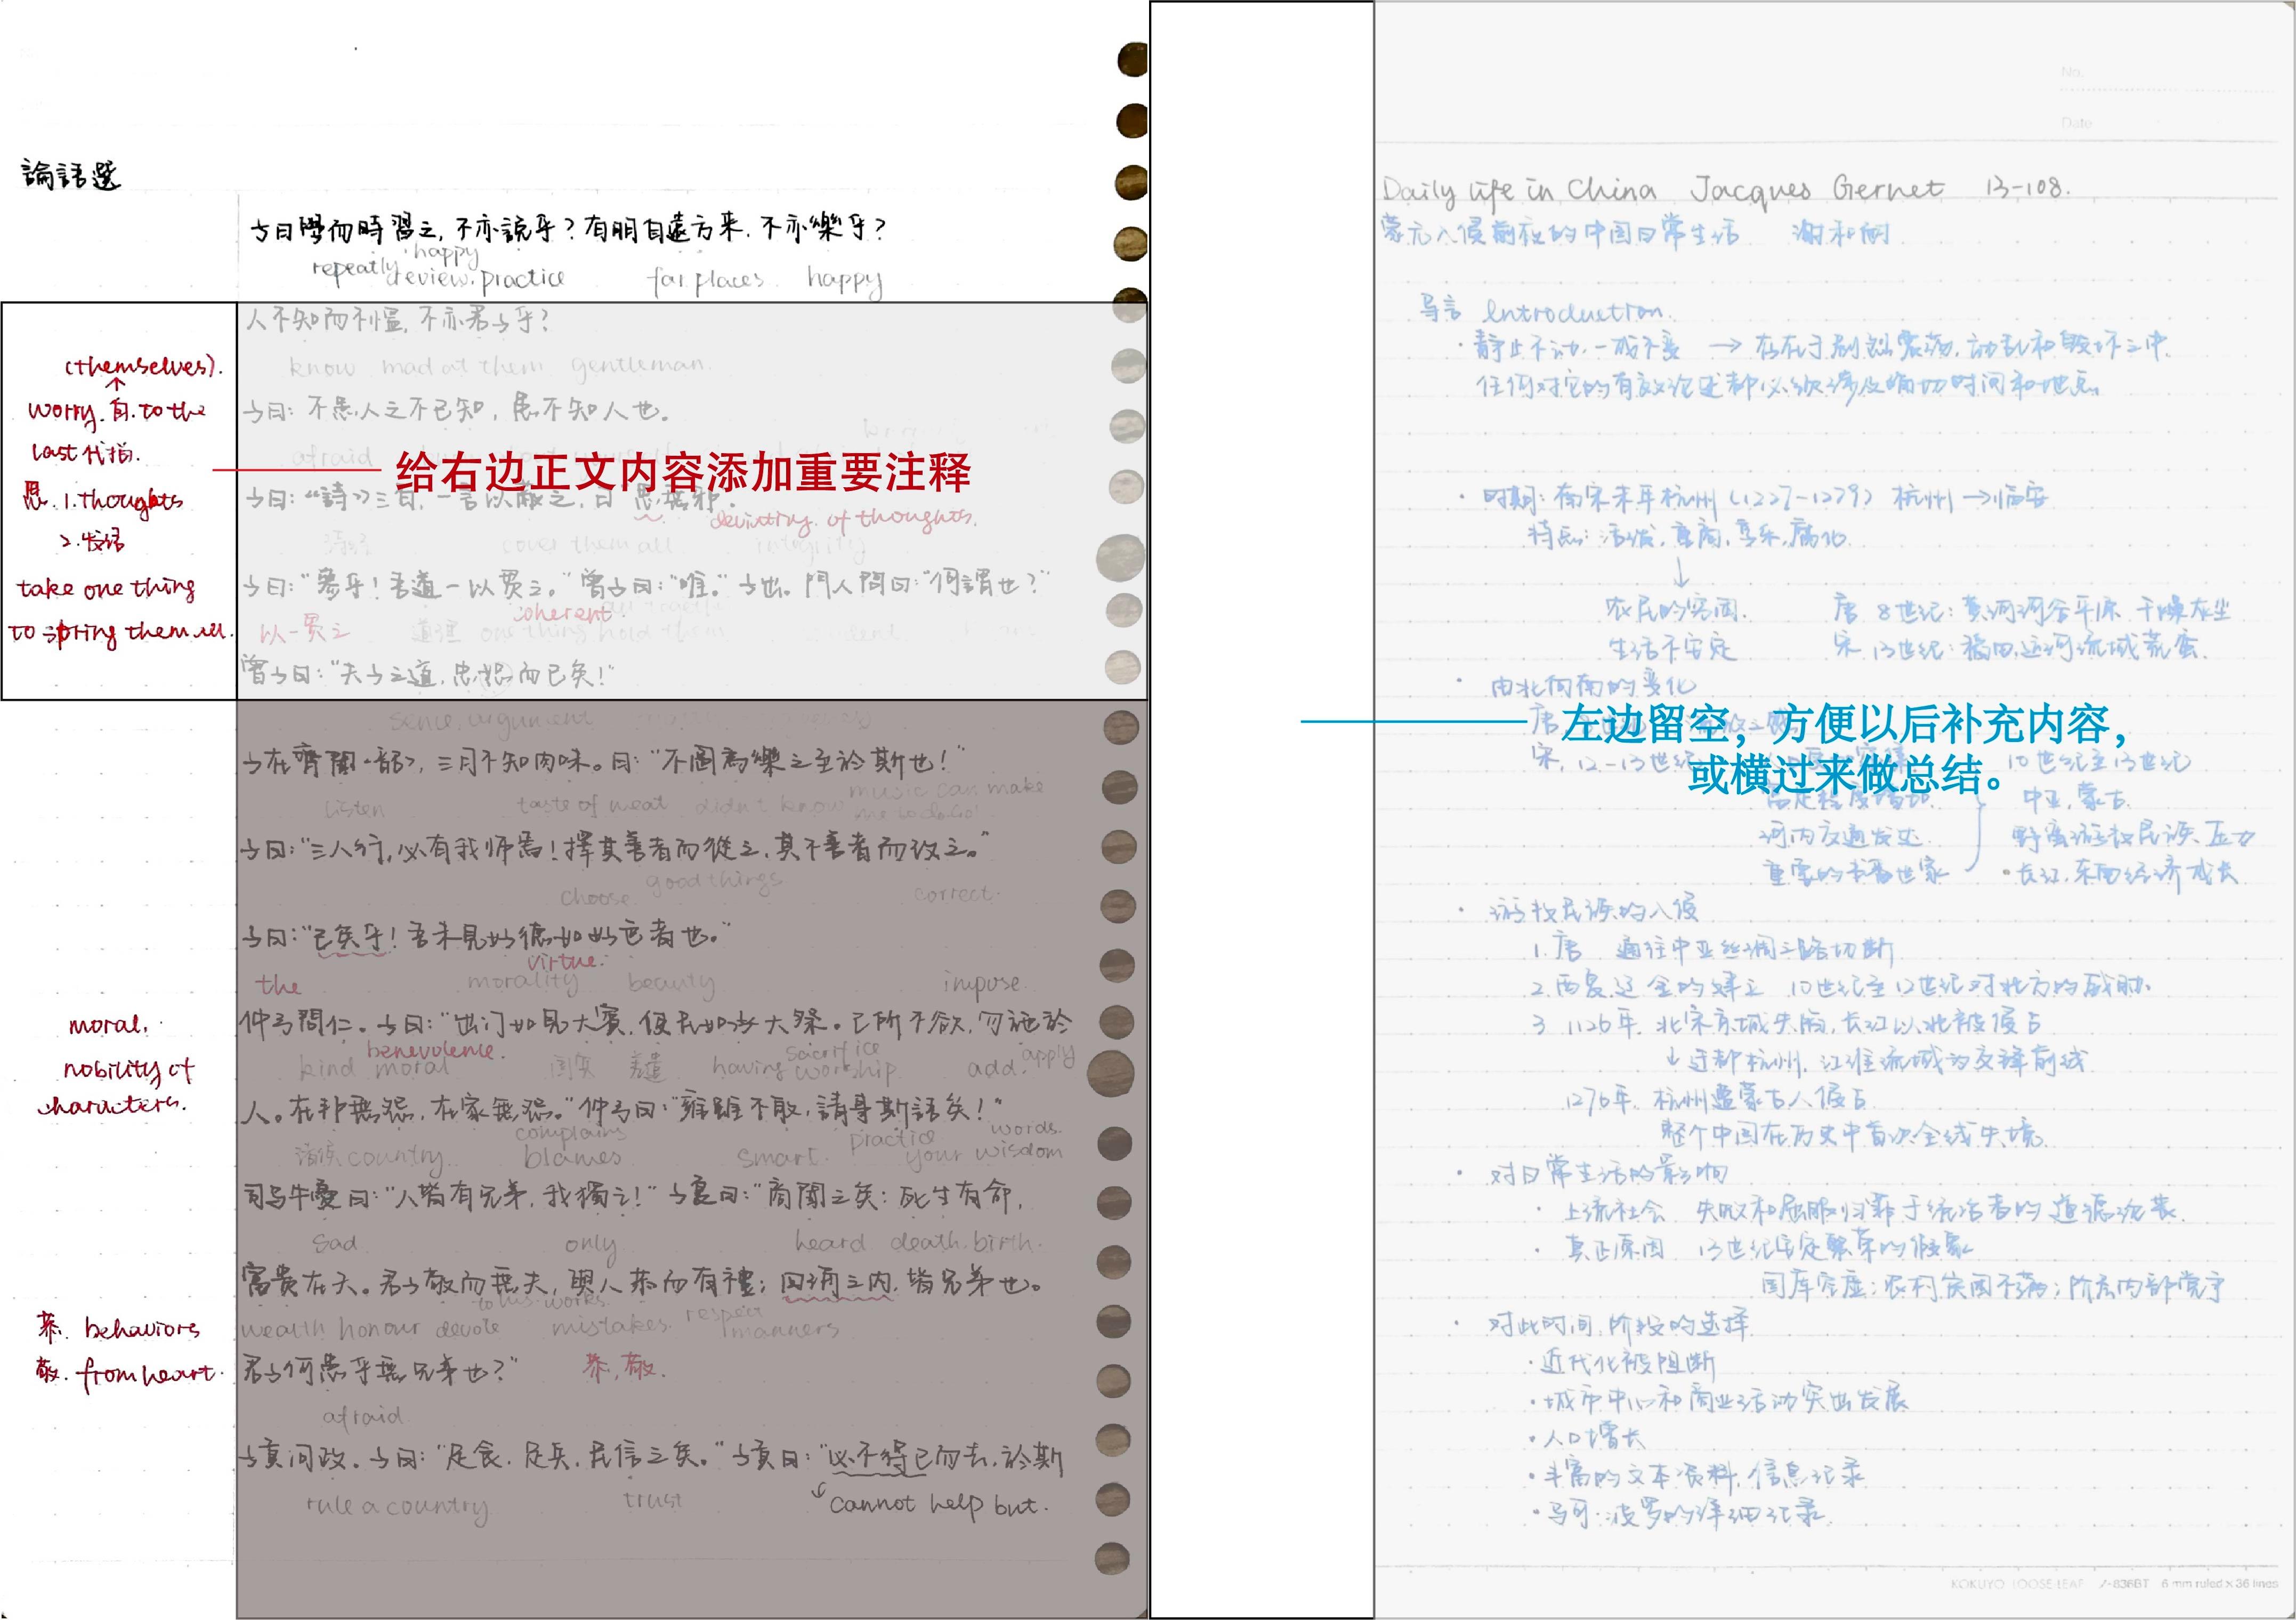 論語選
子曰學而時習之，不亦說乎？有朋自遠方來，不亦樂乎？
happy
repeatly review.practice far places happy
人不知而不慍，不亦君子乎？
know mad at them gentleman.
子曰：不患人之不己知，患不知人也。
afraid
子曰："詩"三百，一言以蔽之，曰思無邪.
deviating of thoughts.
cover them all integrity
子曰："參乎！吾道一以貫之。"曾子曰："唯。"子出。門人問曰："何謂也？"
coherent.
以一貫之 道理 one thing hold them
曾子曰："夫子之道，忠恕而已矣！"
(themselves).
↑
worry. 自. to the
last 代指.
思. 1. thoughts
2. 发语
take one thing
to spring them all.
给右边正文内容添加重要注释
sence, argument
子在齊聞《韶》，三月不知肉味。曰："不圖為樂之至於斯也！"
music can make
listen taste of meat didn't know me to do so!
子曰："三人行，必有我师焉！擇其善者而從之，其不善者而改之。"
good things
choose correct.
子曰："已矣乎！吾未見好德如好色者也。"
virtue.
the morality beauty impose
仲弓問仁。子曰："出门如見大賓，使民如承大祭。己所不欲，勿施於
benevolence. sacrifice apply
kind moral having worship add.
人。在邦無怨，在家無怨。"仲弓曰："雍雖不敏，請事斯語矣！"
complains practice words.
country blames smart. your wisdom
司马牛憂曰："人皆有兄弟，我獨亡！"子夏曰："商聞之矣：死生有命，
Sad only heard death.birth.
富貴在天。君子敬而無失，與人恭而有禮；四海之内，皆兄弟也。
to his works. respect
wealth honour devote mistakes. manners
君子何患乎無兄弟也？" 恭,敬.
afraid
子貢问政。子曰："足食，足兵，民信之矣。"子貢曰："必不得已而去，於斯
rule a country trust cannot help but.
moral.
nobility of
characters.
恭. behaviors
敬. from heart.
No.
Date
Daily life in China Jacques Gernet 13-108.
蒙元入侵前夜的中国日常生活 谢和耐
导言 Introduction.
·静止不动,一成不变 → 存在于剧烈震荡,动乱和毁坏之中.
任何对它的有效论述都必须涉及确切时间和地点.
· 时期：南宋末年杭州(1227-1279) 杭州→临安
特点：活泼,重商,享乐,腐化.
↓
农民的穷困. 唐 8世纪：黄河河谷平原 干燥灰尘
生活不安定 宋 13世纪：稻田,近河流域荒蛮.
· 由北向南的变化
唐
左边留空，方便以后补充内容，
或横过来做总结。
宋, 12-13世纪 10世纪至13世纪
中亚,蒙古.
河内交通发达 野蛮游牧民族压力
重要的书香世家 ·长江,东南经济成长
· 游牧民族的入侵
1.唐 通往中亚丝绸之路切断
2.西夏辽金的建立 10世纪至12世纪对北方的威胁.
3 1126年. 北宋京城失陷,长江以北被侵占
↓迁都杭州,江淮流域为交锋前线
1276年. 杭州遭蒙古人侵占.
整个中国在历史中首次全线失境.
· 对日常生活的影响
· 上流社会 失败和屈服归罪于统治者的道德沦丧.
· 真正原因 13世纪安定繁荣的假象
国库空虚；农村贫困不满；阶层内部党争
· 对此时间,阶段的选择
·近代化被阻断
·城市中心和商业活动突出发展
·人口增长
·丰富的文本资料,信息记录
·马可·波罗的详细记录.
KOKUYO LOOSE-LEAF ノ-836BT 6 mm ruled × 36 lines